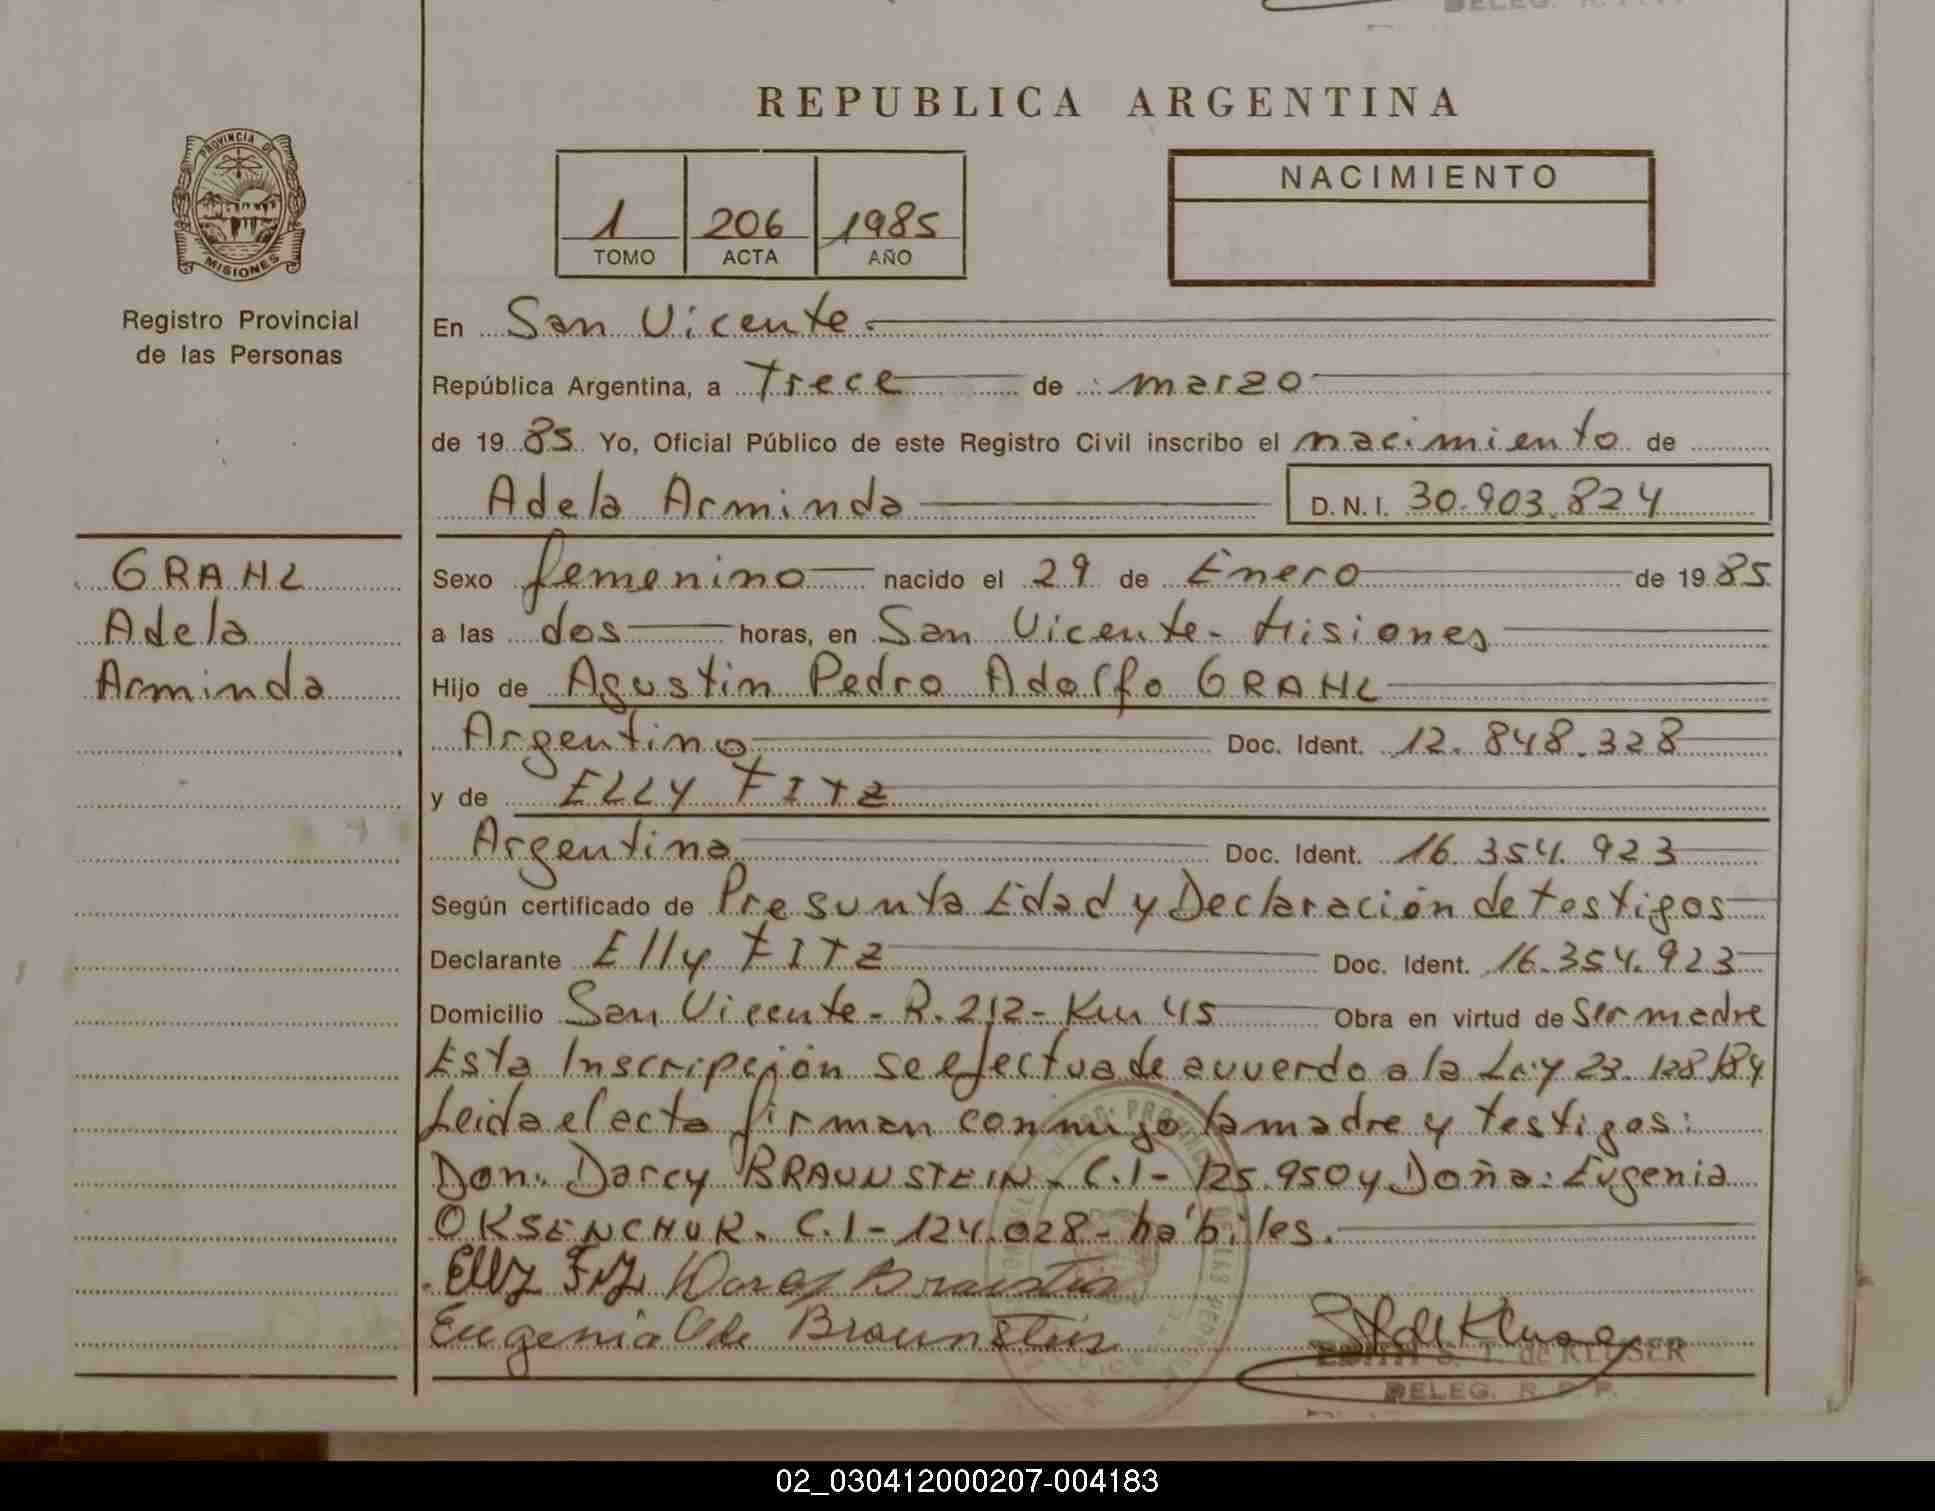 DELEG. R. P. P.
REPUBLICA ARGENTINA
PROVINCIA DE
MISIONES
Registro Provincial
de las Personas
1 206 1985
TOMO ACTA AÑO
NACIMIENTO
En San Vicente.
República Argentina, a trece de marzo
de 19 85 Yo, Oficial Público de este Registro Civil inscribo el nacimiento de
Adela Arminda D.N.I. 30.903.824
GRAHL
Adela
Arminda
Sexo femenino nacido el 29 de Enero de 19 85
a las dos horas, en San Vicente - Misiones
Hijo de Agustin Pedro Adolfo GRAHL
Argentino Doc. Ident. 12.848.328
y de ELLY FITZ
Argentina Doc. Ident. 16.354.923
Según certificado de Presunta Edad y Declaración de testigos
Declarante Elly FITZ Doc. Ident. 16.354.923
Domicilio San Vicente - R. 212 - Km 45 Obra en virtud de ser madre
Esta Inscripción se efectua de acuerdo a la Ley 23.128/84
Leida el acta firman conmigo la madre y testigos:
Don: Darcy BRAUNSTEIN - C.I - 125.950 y Doña: Eugenia
OKSENCHUK. C.I - 124.028 - hábiles.
Elly Fitz Darcy Braunstein
Eugenia O de Braunstein
EDITH S. T. de KLUSER
DELEG. R. P. P.
02_030412000207-004183